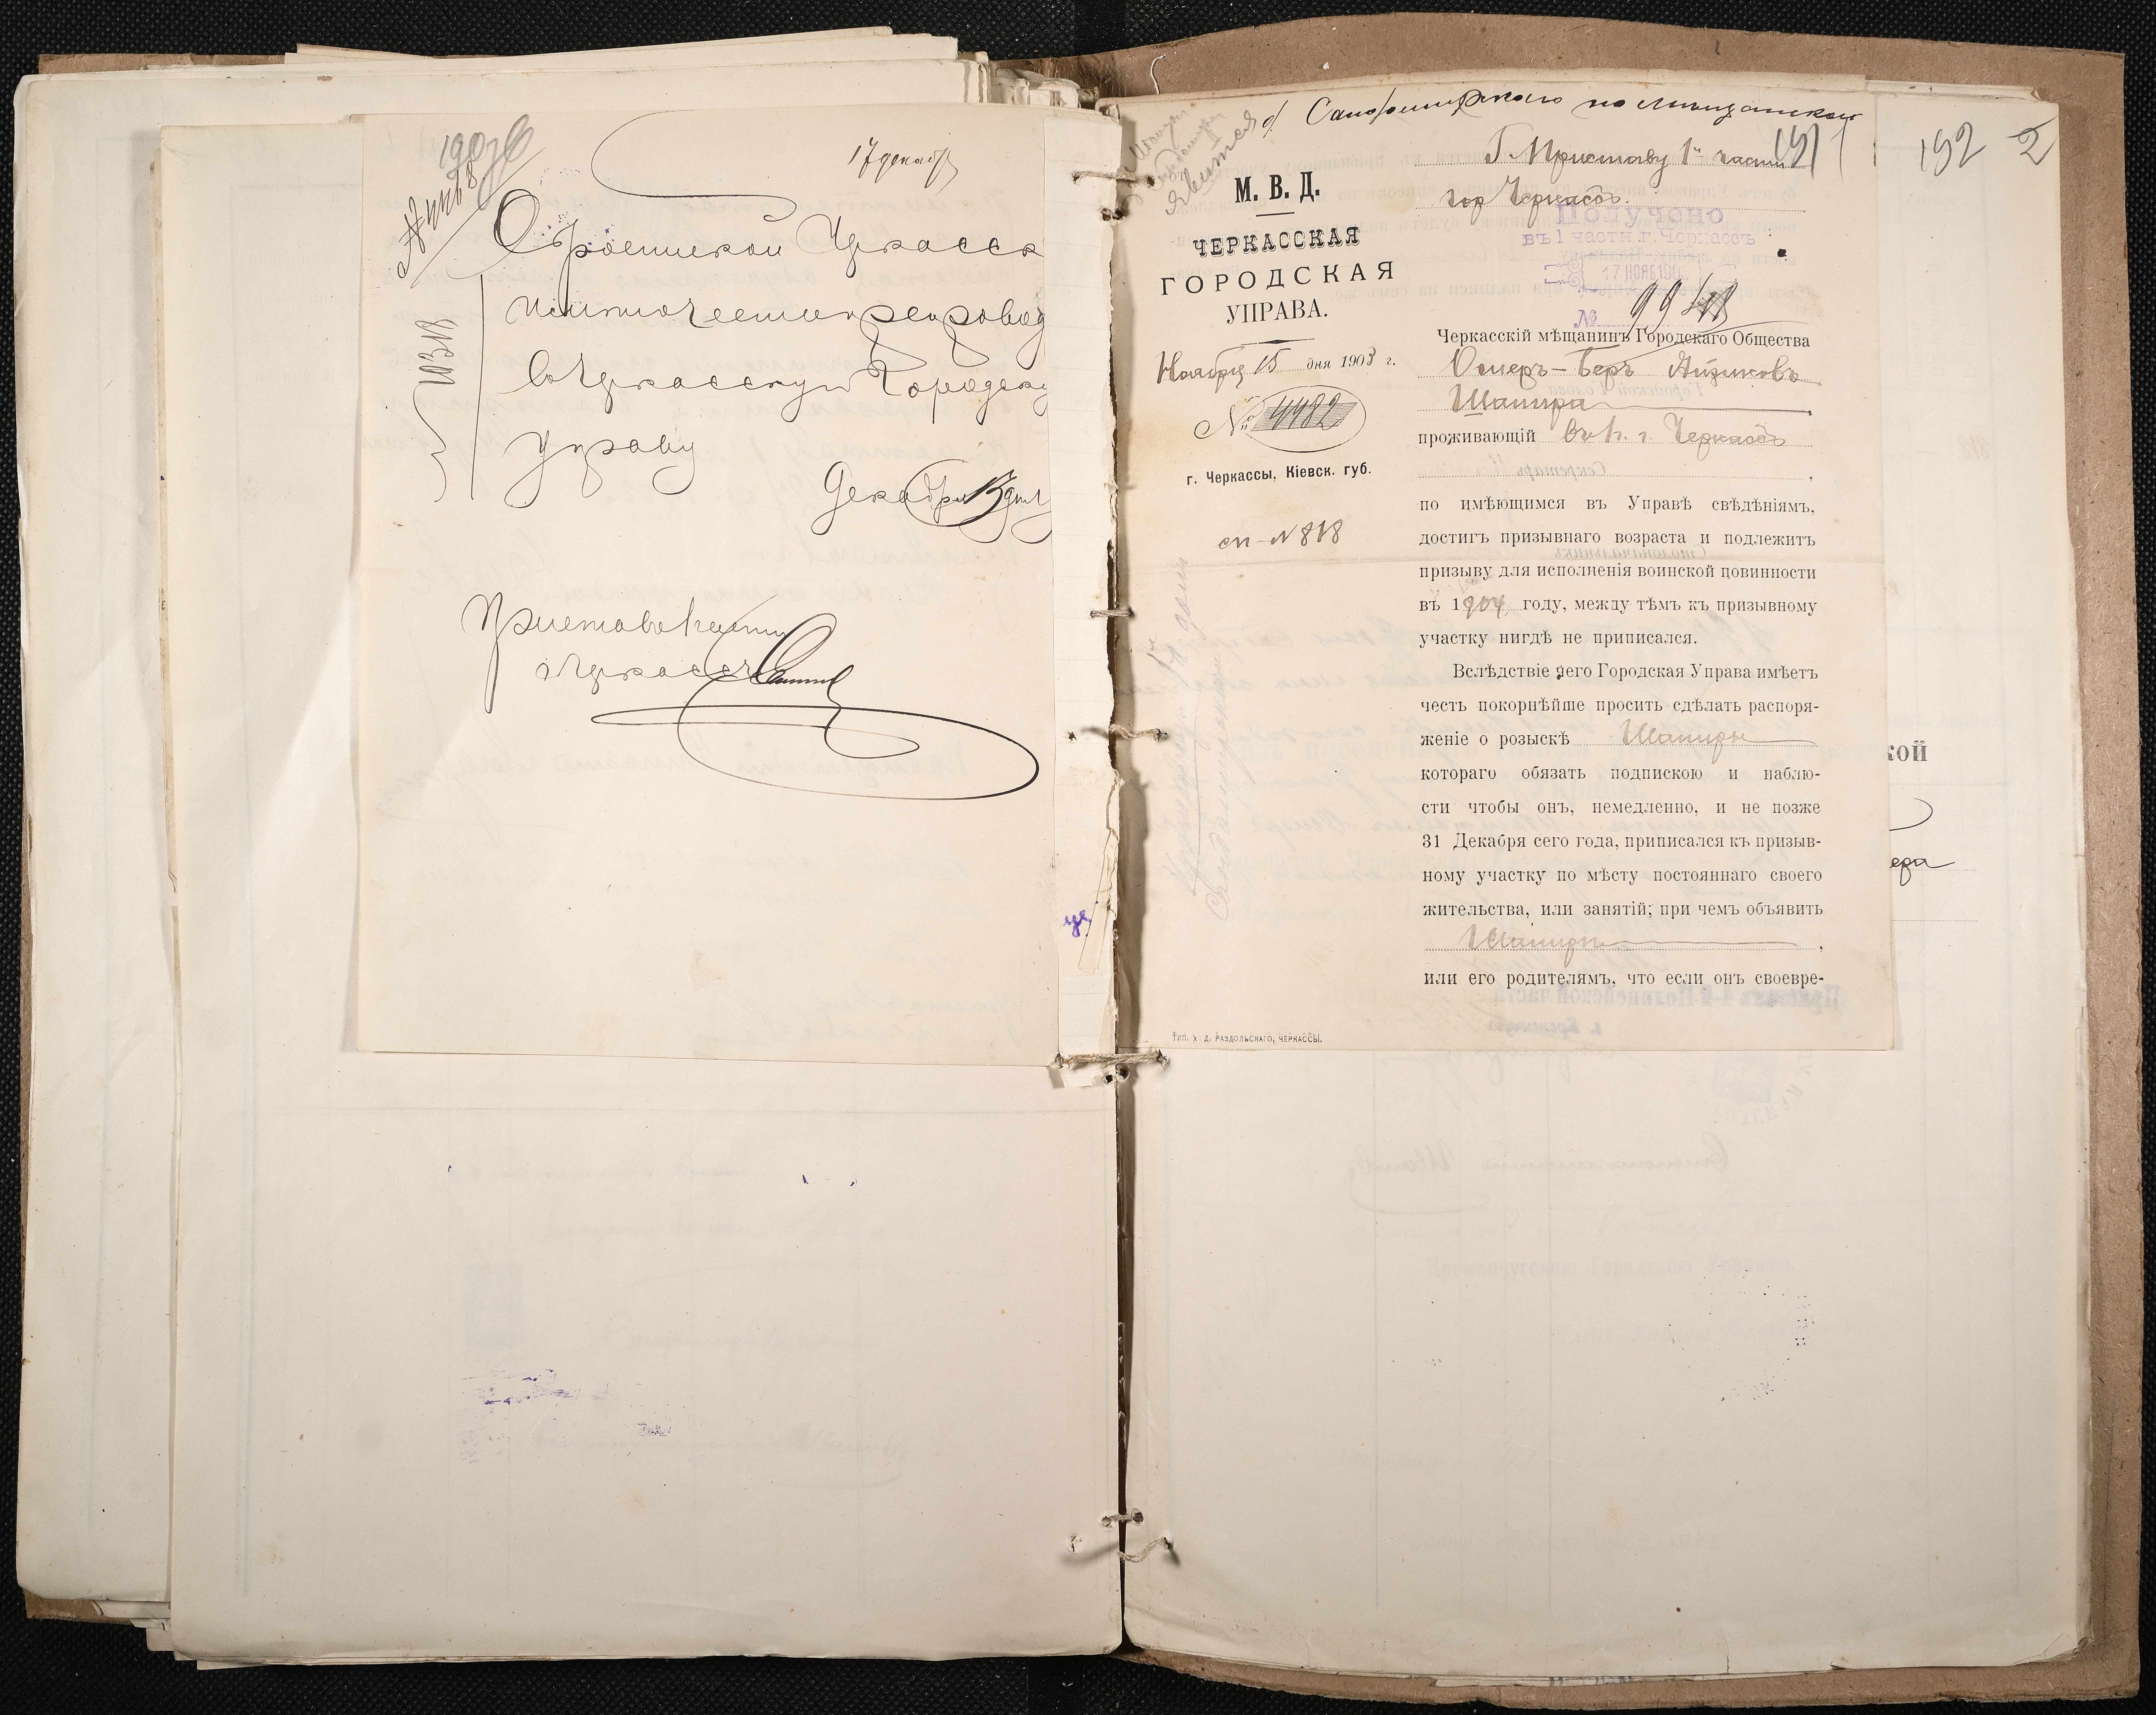 17 декабр
Съ роспискою Черкасск
препровод
въ Черкасскую Городску
Управу
Декабря 13 дня
10318
Приставъ 1 части
г. Черкассъ
по Мѣщанской
Г. Приставу 1й части
гор Черкассъ.
191
192
2
явится
М. В. Д.
ЧЕРКАССКАЯ
ГОРОДСКАЯ
УПРАВА.
Ноября 15 дня 1903 г.
№ 4482
г. Черкассы, Кіевск. губ.
сп - № 818
Получено
въ 1 части г. Черкассъ
17 НОЯБ 190
№
Черкасскій мѣщанинъ Городскаго Общества
Ошеръ-Беръ Айзиковъ
Шапира
проживающій въ г. Черкассъ
по имѣющимся въ Управѣ свѣдѣніямъ,
достигъ призывнаго возраста и подлежитъ
призыву для исполненія воинской повинности
въ 1904 году, между тѣмъ къ призывному
участку нигдѣ не приписался.
Вслѣдствіе чего Городская Управа имѣетъ
честь покорнѣйше просить сдѣлать распоря-
женіе о розыскѣ Шапиры
котораго обязать подпискою и наблю-
сти чтобы онъ, немедленно, и не позже
31 Декабря сего года, приписался къ призыв-
ному участку по мѣсту постояннаго своего
жительства, или занятій; при чемъ объявить
Шапирѣ,
или его родителямъ, что если онъ своевре-
Тип. Х. Д. РАЗДОЛЬСКАГО, ЧЕРКАССЫ.
кой
ера